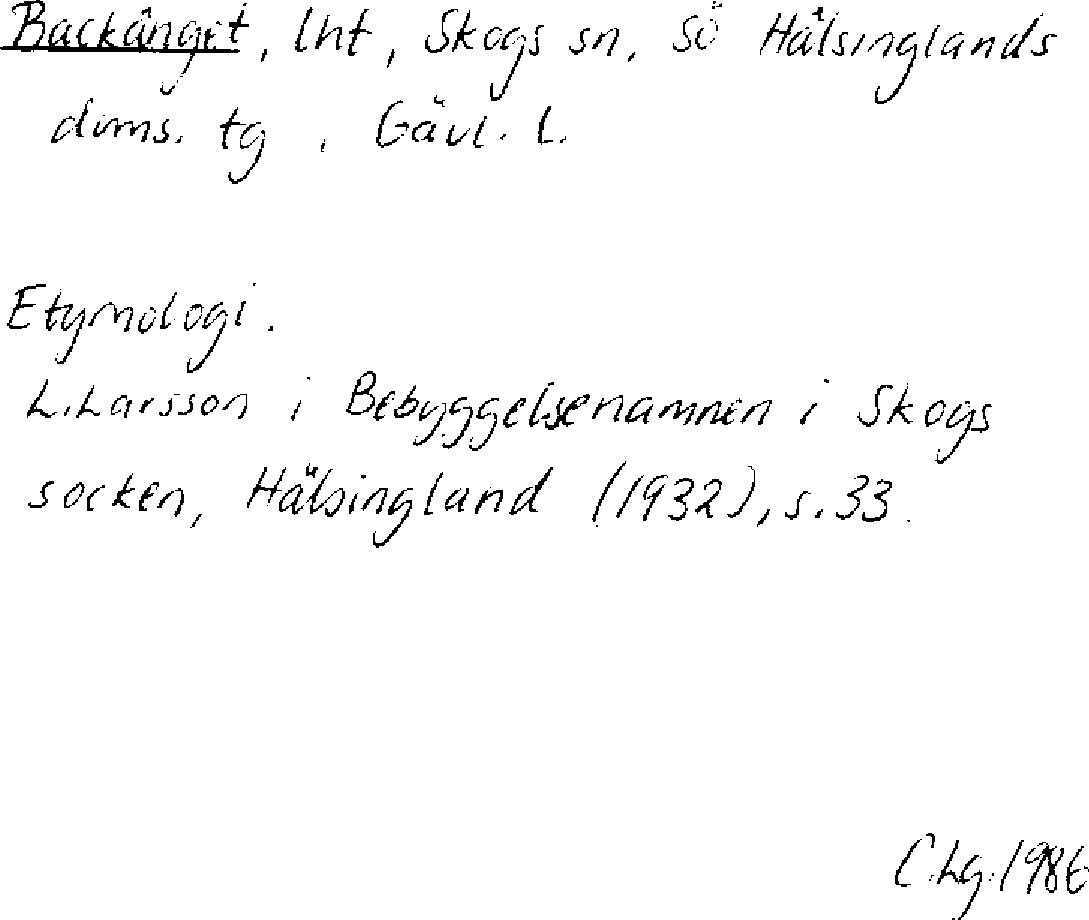 Backänget, lht, Skogs sn, Sö Hälsinglands
doms. tg, Gävl. l.
Etymologi.
L. Larsson i Bebyggelsenamnen i Skogs
socken, Hälsingland (1932), s. 33.
C.Lg. 1986